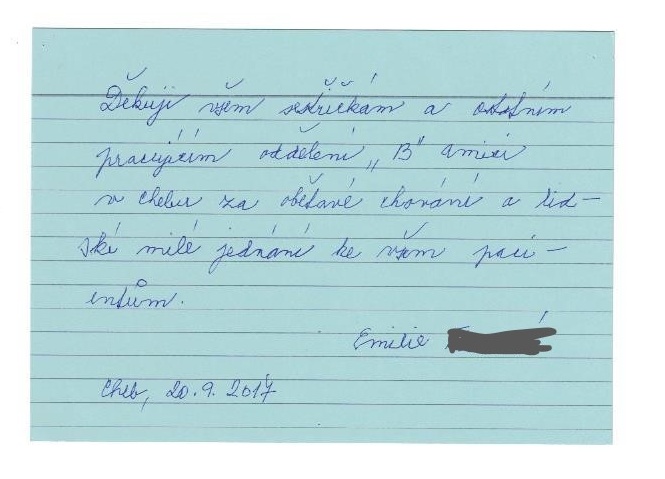 Děkuji všem sestřičkám a ostatním
pracujícím oddělení „B" amici
v Chebu za obětavé chování a lid-
ské milé jednání ke všem paci-
entům.
Emilie
Cheb, 20.9.2017